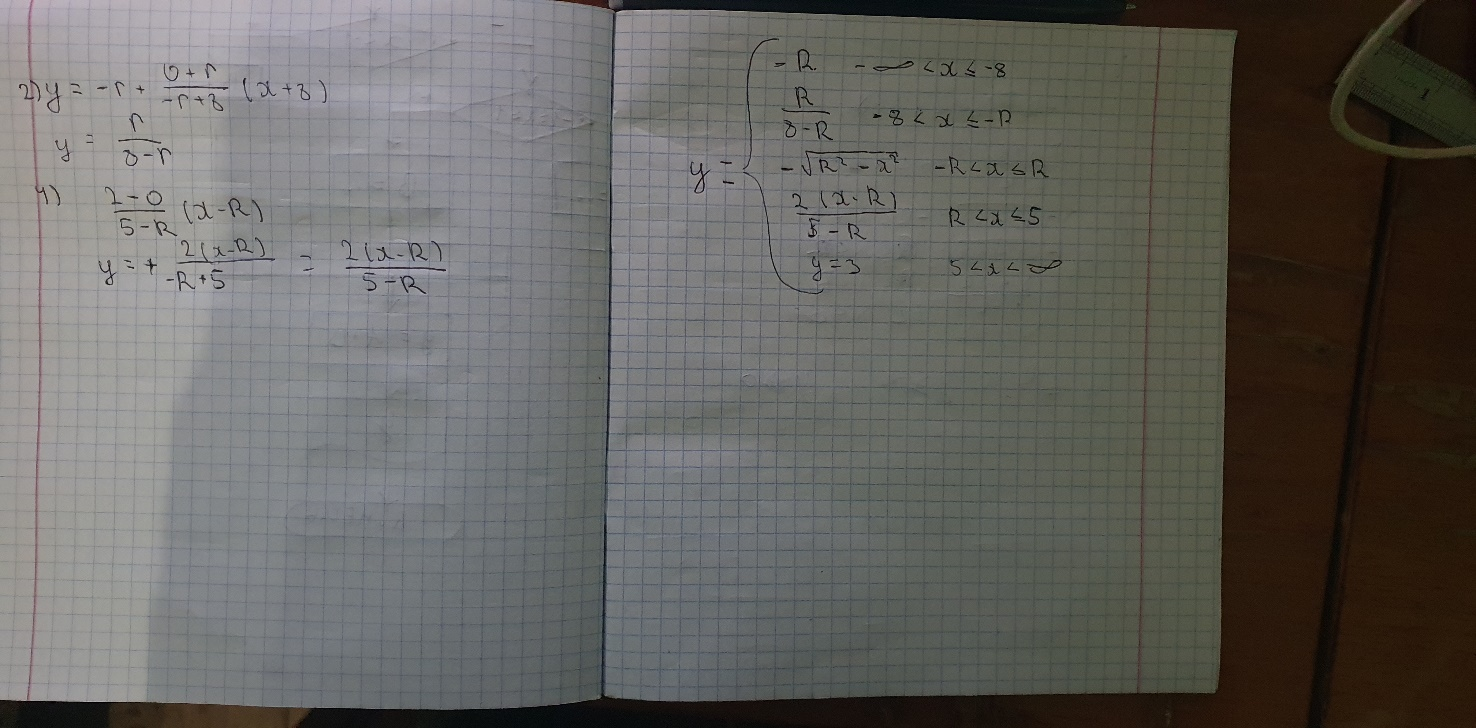 2) y = -r + (0+r)/(-r+8) (x+8)
y = r/(8-r)
4) (2-0)/(5-R) (x-R)
y = + 2(x-R)/(-R+5) = 2(x-R)/(5-R)
y = {
-R -∞ < x ≤ -8
R/(8-R) -8 < x ≤ -R
-√(R² - x²) -R < x ≤ R
2(x-R)/(5-R) R < x ≤ 5
y=3 5 < x < ∞
1